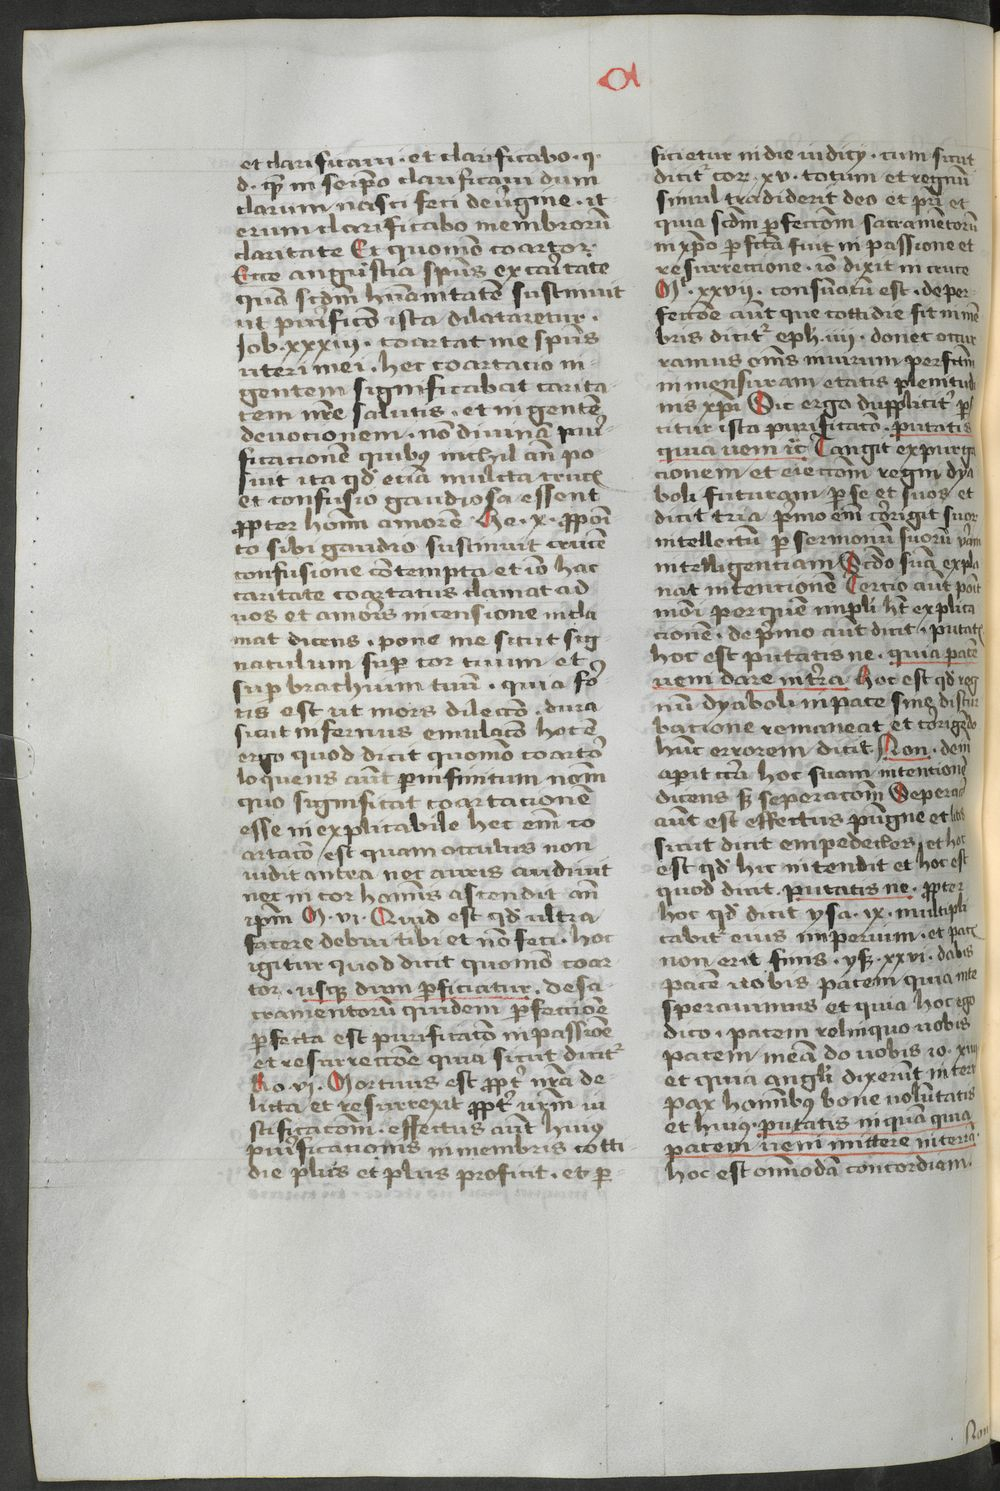 a
et clarificavi · et clarificabo · q·
d· qͣ in seip̄o clarificavi dum
clarum nasci feci de v̓gine · it
erum clarificabo membrorū
claritate Et quomō coartor·
Ecce angustia sp̄us ex cāitate
quā scd̄m hūanitatē sustinuit
ut pur̓ifico ista dilataretur ·
Job · xxxiij · coartat me sp̄us
uteri mei · hec coartacio in
gentem significabat carita
tem nr̄e salutis · et ingentē
devocionem · nō divinā pur̓i
ficacionē quibꝰ nichil an̄ po
suit ita qd̓ ecīa multa crucꝭ
et confusio gaudiosa essent
ꝓpter hoīm amorē He · x · ꝓpoī
to sibi gaudio sustinuit crucē
confusione cōtempta et iō hac
caritate coartatus clamat ad
nos et amoris incensione incla
mat dicens · pone me sicut sig
naculum suꝑ cor tuum et
suꝑ brachium tuū · quia fo̓
tis est ut mors dilectō · dura
sicut infernus emulacō hoc ē
ergo quod dicit quomō coartor̓
loquens aūt ꝑ infinitum nom̄
quo significat coartacionē
esse inexplicabile hec eīm co
artacō est quam occulus non
vidit antea nec auris audivit
nec in cor hominis ascendit an̄
ip̄m M · vi · Quid est qd̓ ultra
facere debui tibi et nō feci · hoc
igitur quod dicit quomō coar
tor · usqꝫ dum ꝑficiatur · de sa
cramentorū quidem ꝑfeccioē
ꝑfecta est purificatō in passioē
et resurrectoē quia sicut dicit̓
Ro · vj · Mortuus est ꝓpt̓ nr̄a de
licta et resurrexit ꝓpt̓ nr̄am iu
stificacōm · effectus aūt huiꝰ
pur̓ificacionis in membris cotti
die plus et plus proficit · et ꝑ
ficietur in die iudicij · cum sicut
dicit̓ cor · xv · totum et regnū
simul tradiderit deo et pr̄i et
quia scd̄m ꝑfectiōm sacramētorū
in xp̄o ꝑfcā fuit in passione et
resurrectione · iō dixit in cruce
Mͭ · xxvij · consūatū est · de per
fectoē aūt que cottidie fit in mē
bris dicit̓ eph · iiij · donec occur
ramus omēs in virum perfctm̄
in mensuram etatis plenitudi
nis xp̄i Sic ergo dupplicit̓ ꝑfi
citur ista purificatō · putatis
quia veni rc̄ Tangit expurga
cionem et eiectōm regni dya
boli futuram ꝑ se et suos et
dicit tria p̓mo eīm cor̓igit suor̄
intellectū ꝑ sermonū suorū v̓am
intelligenciam Scd̄o suā expla
nat intencionē Tercio aūt poīt
modi per quē impli hr̄ explica
cionē · de p̓mo aūt dicit · putatꝭ
hoc est putatis ne · quia pacē
veni dare in t̓ra hoc est qd̓ reg
nū dyaboli in pace sine distur
bacione remaneat et corigēdo
huc errorem dicit Non · dein̄
aperit circa hoc suam intencionē
dicens sꝫ seperacōm Seperac̄o
aūt est effectus pugne et litis
sicut dicit empedecles et hoc
est qd̓ hic intendit et hoc est
quod dicit · putatis ne · ꝓpter
hoc qd̓ dicit ysa · ix · multipli
cabit̓ eius imperium · et pacꝭ
non erit finis · ysͣ · xxvi · dabis
pacē nobis pacem quia in te
speravimus et quia hoc ego
dico · pacem relinquo vobis
pacem meā do vobis io · xiiij
et quia angl̓i dixerūt in terr̄
pax hominibꝰ bone volūtatis
et huiꝰ · putatis inquā quia
pacem veni mittere in terrā
hoc est omīmodā concordiam ·
Non